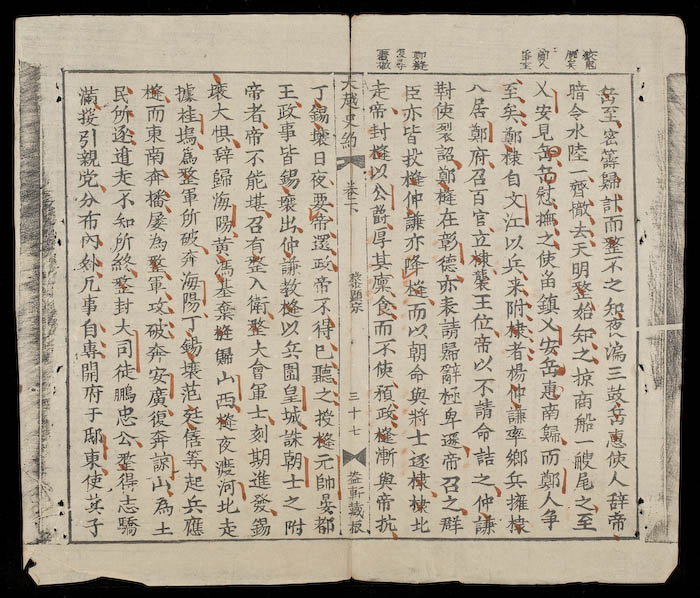 岳至密籌歸計而整不之知夜漏三鼓岳惠使人辞帝
暗令水陸一齊撤去天明整始知之掠商船一艘尾之至
乂安見岳岳慰撫之使畱鎮乂安岳惠南歸而鄭人争
至矣鄭棣自文江以兵来附棣者楊仲謙率鄉兵擁棣
入居鄭府召百官立棣襲王位帝以不請命詰之仲謙
對使裂詔鄭縫在彰德亦表請歸辭極卑遜帝召之群
臣亦皆投縫仲謙亦降縫而以朝命與將士逐棣棣北
走帝封縫以公爵厚其廪食而不使預政縫漸與帝抗
大越史約 卷下 黎顯宗 三十七 盎軒藏板
丁錫壤日夜要帝還政帝不得已聽之授縫元帥晏都
王政事皆錫壤出仲謙教縫以兵圍皇城誅朝士之附
帝者帝不能堪召有整入衛整大會軍士刻期進發錫
壤大惧辞歸海陽黄馮基棄縫歸山西縫夜渡河北走
據桂塢為整軍所破奔海陽丁錫壤范廷僐等起兵應
縫而東南奔播屡為整軍攻破奔安廣復奔諒山為土
民所逐遁去不知所終整封大司徒鵬忠公整得志驕
滿援引親党分布内外凡事自專開府于邸東使其子